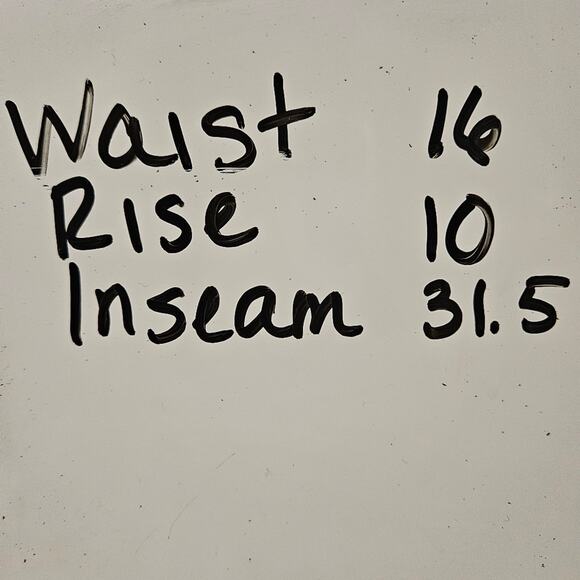 Waist 16
Rise 10
Inseam 31.5